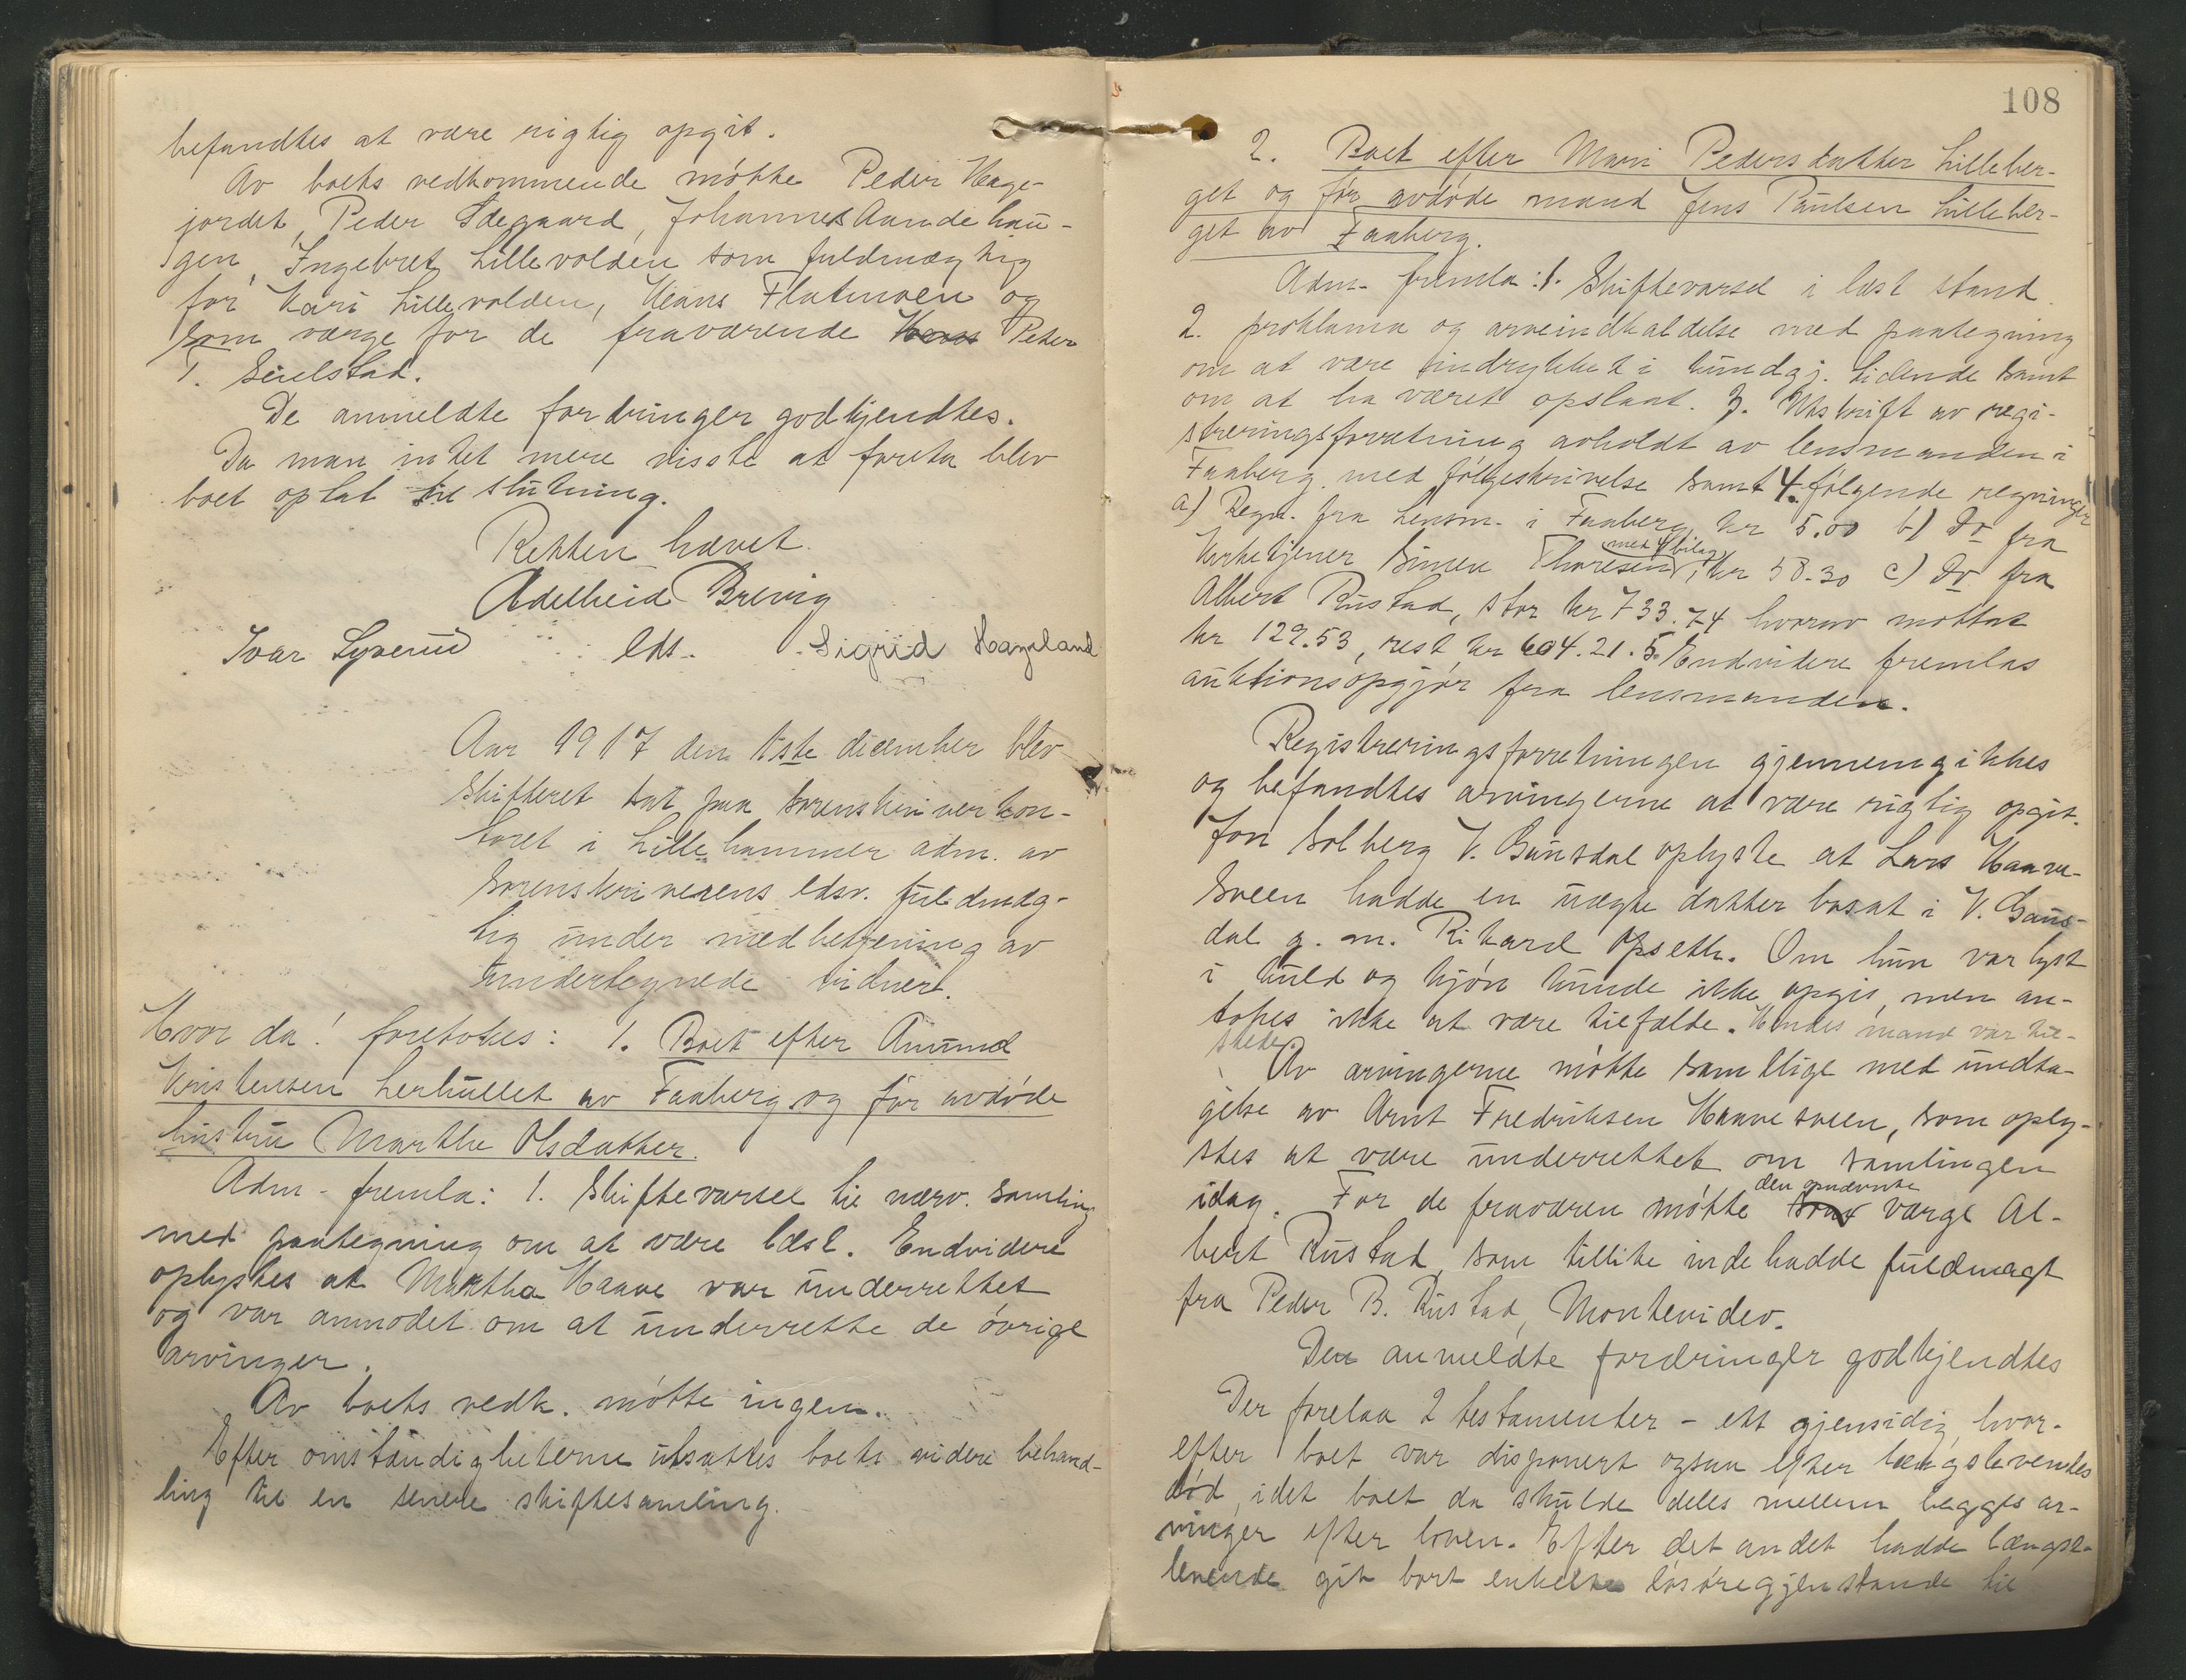 befandtes at være rigtig opgit.
Av boets vedkommende møtte Peder Hage-
jordet, Peder Ødegaard, Johannes Aandehau-
gen, Ingebret Lillevolden som fuldmægtig
for Kari Lillevolden, Hans Flatmoen og
som værge for de fraværende Hans Peter
T. Seielstad.
De anmeldte fordringer godkjendtes.
Da man intet mere visste at foreta blev
boet optat til slutning.
Retten hævet.
Adelheid Brevig
Ivar Lyverud eds. Sigrid Hageland
Aar 1917 den 1ste december blev
skifteret sat paa sorenskriverkon-
toret i Lillehammer adm. av
sorenskriverens edsv. fuldmæg-
tig under medbetjening av
undertegnede vidner.
Hvor da! foretokes: 1. Boet efter Amund
Kristensen Lerhullet av Faaberg og før avdøde
hustru Marthe Olsdatter.
Adm. fremla: 1. Skiftevarsel til nærv. samling
med paategning om at være læst. Endvidere
oplystes at Martha Haave var underrettet
og var anmodet om at underrette de øvrige
arvinger.
Av boets vedk. møtte ingen.
Efter omstændigheterne utsattes boets videre behand-
ling til en senere skiftesamling.
108
2. Boet efter Mari Pedersdatter Lilleber-
get og før avdøde mand Jens Paulsen Lilleber-
get av Faaberg.
Adm. fremla: 1. Skiftevarsel i læst stand.
2. proklama og arveindkaldelse med paategning
om at være indrykket i kundgj. tidende samt
om at ha været opslaat. 3. Utskrift av regi-
streringsforretning avholdt av lensmanden i
Faaberg med følgeskrivelse samt 4. følgende regninger
a) Regn. fra Lensm. i Faaberg kr 5.00 b) Do fra
Kirketjener Simen Thoresen, med 4 bilag, kr 58.30 c) Do fra
Albert Rustad, stor kr 733.74 hvorav mottat
kr 129.53, rest kr 604.21. 5. Endvidere fremlas
auktionsopgjør fra lensmanden.
Registreringsforretningen gjennemgikkes
og befandtes arvingerne at være rigtig opgit.
Jon Solberg V. Gausdal oplyste at Lars Haave-
sveen hadde en uægte datter bosat i V. Gaus-
dal g. m. Rikard Opseth. Om hun var lyst
i kuld og kjøn kunde ikke opgis, men an-
tokes ikke at være tilfælde. Hendes mand var til-
stede.
Av arvingerne møtte samtlige med undta-
gelse av Arnt Fredriksen Haavesveen, som oply-
stes at være underrettet om samlingen
idag. For de fraværen møtte som den opnævnte værge Al-
bert Rustad, som tillike inde hadde fuldmagt
fra Peder B. Rustad, Montevideo.
Den anmeldte fordringer godkjendtes
Der forelaa 2 testamenter - ett gjensidig, hvor-
efter boet var disponert ogsaa efter længstlevendes
død, idet boet da skulde deles mellem begges ar-
vinger efter loven. Efter det andet hadde længst-
levende git bort enkelte løsøregjenstande til